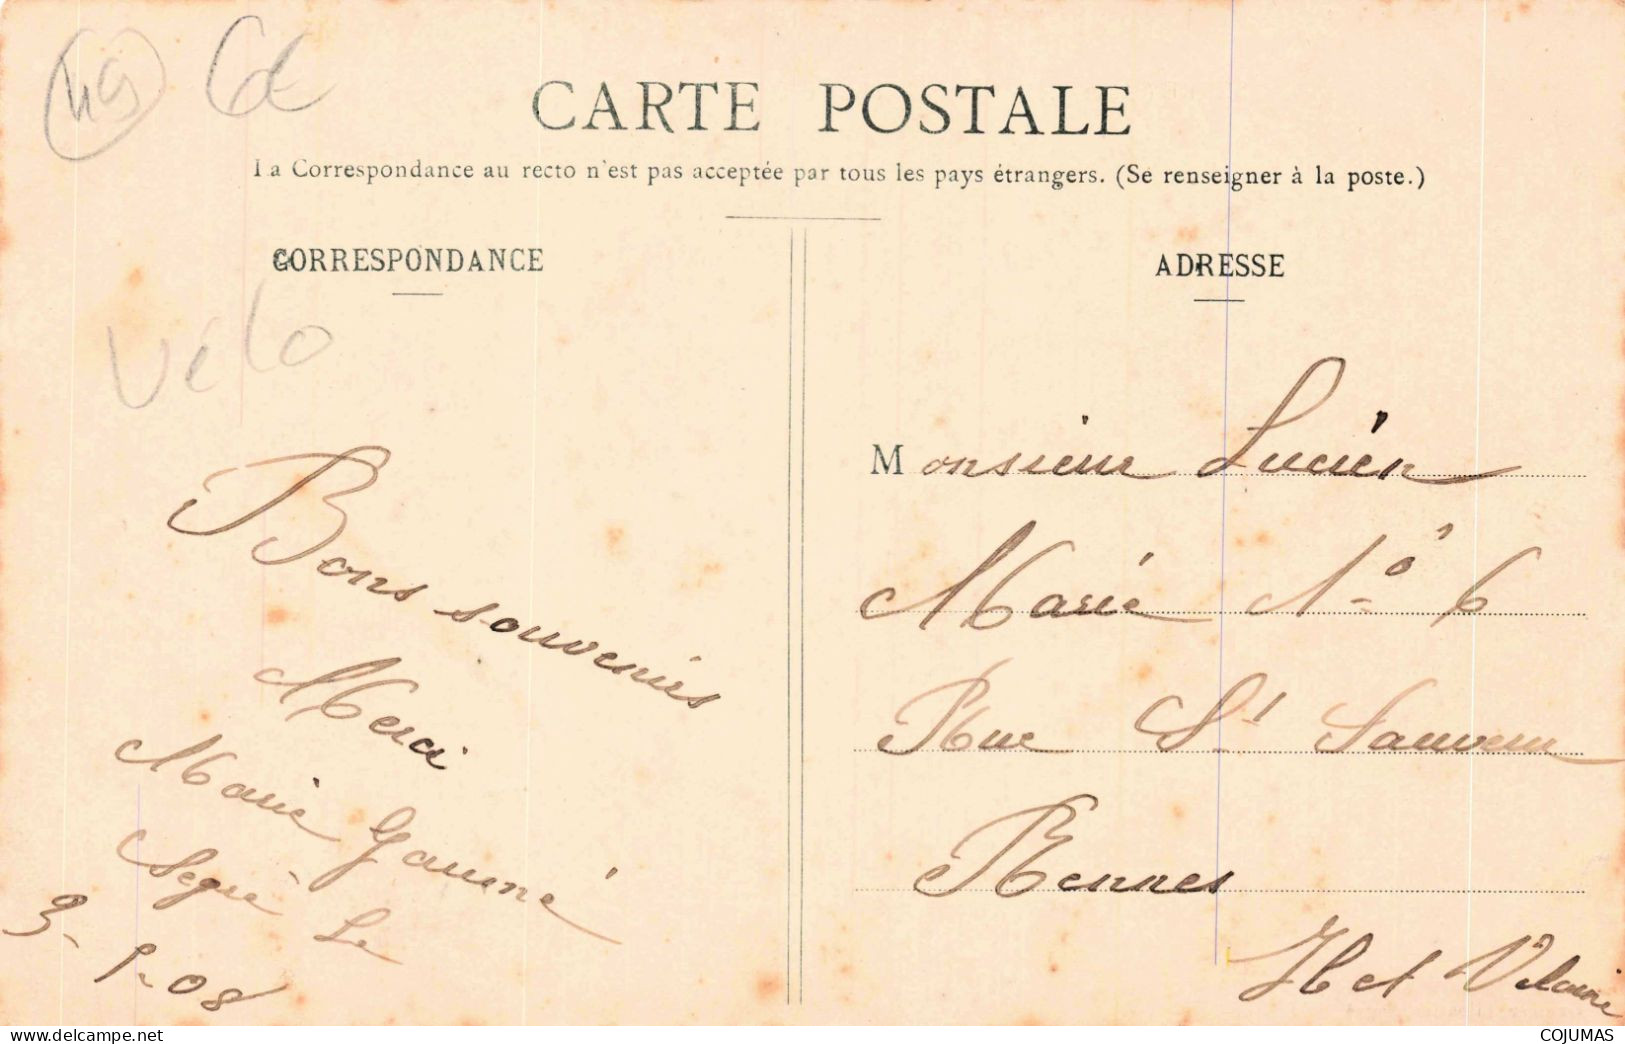 49 6€
CARTE POSTALE
La Correspondance au recto n'est pas acceptée par tous les pays étrangers. (Se renseigner à la poste.)
CORRESPONDANCE
Vélo
Bons souvenirs
Merci
Marie
Segré Le
3- -08
ADRESSE
Monsieur Lucien
Marie No 6
Rue St Sauveur
Rennes
Ille et Vilaine
COJUMAS